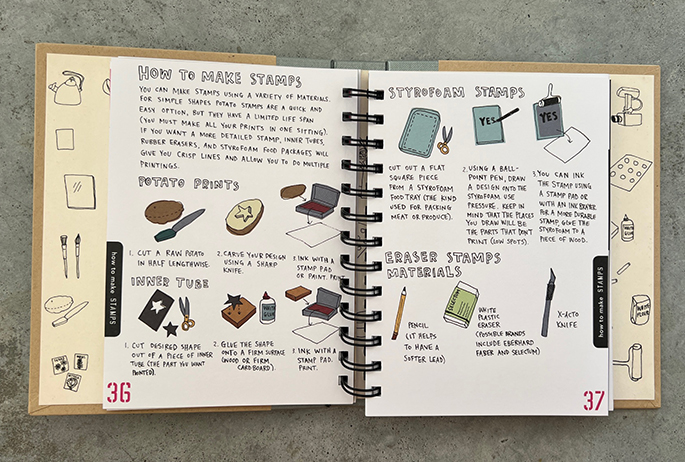 HOW TO MAKE STAMPS
YOU CAN MAKE STAMPS USING A VARIETY OF MATERIALS.
FOR SIMPLE SHAPES POTATO STAMPS ARE A QUICK AND
EASY OPTION, BUT THEY HAVE A LIMITED LIFE SPAN
(YOU MUST MAKE ALL YOUR PRINTS IN ONE SITTING).
IF YOU WANT A MORE DETAILED STAMP, INNER TUBES,
RUBBER ERASERS, AND STYROFOAM FOOD PACKAGES WILL
GIVE YOU CRISP LINES AND ALLOW YOU TO DO MULTIPLE
PRINTINGS.
POTATO PRINTS
1. CUT A RAW POTATO
IN HALF LENGTHWISE.
2. CARVE YOUR DESIGN
USING A SHARP
KNIFE.
3. INK WITH A
STAMP PAD
OR PAINT. PRINT.
INNER TUBE
1. CUT DESIRED SHAPE
OUT OF A PIECE OF INNER
TUBE (THE PART YOU WANT
PRINTED).
2. GLUE THE SHAPE
ONTO A FIRM SURFACE
(WOOD OR FIRM
CARDBOARD).
3. INK WITH A
STAMP PAD.
PRINT.
how to make STAMPS
36
STYROFOAM STAMPS
YES
YES
CUT OUT A FLAT
SQUARE PIECE
FROM A STYROFOAM
FOOD TRAY (THE KIND
USED FOR PACKING
MEAT OR PRODUCE).
2. USING A BALL-
POINT PEN, DRAW
A DESIGN ONTO THE
STYROFOAM. USE
PRESSURE. KEEP IN
MIND THAT THE PLACES
YOU DRAW WILL BE
THE PARTS THAT DON'T
PRINT (LOW SPOTS).
3. YOU CAN INK
THE STAMP USING
A STAMP PAD OR
WITH AN INK BRAYER.
FOR A MORE DURABLE
STAMP, GLUE THE
STYROFOAM TO A
PIECE OF WOOD.
ERASER STAMPS
MATERIALS
PENCIL
(IT HELPS
TO HAVE A
SOFTER LEAD)
WHITE
PLASTIC
ERASER
(POSSIBLE BRANDS
INCLUDE EBERHARD
FABER AND SELECTUM)
X-ACTO
KNIFE
how to make STAMPS
37